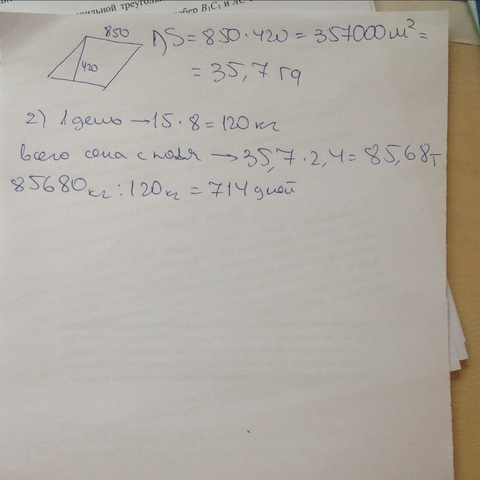 сильной треуголь
ребер B₁C₁ и AC
850
420
1) S = 850 · 420 = 357000 м² =
= 35,7 га
2) 1 день → 15 · 8 = 120 кг
всего сена с поля → 35,7 · 2,4 = 85,68 т
85680 кг : 120 кг = 714 дней